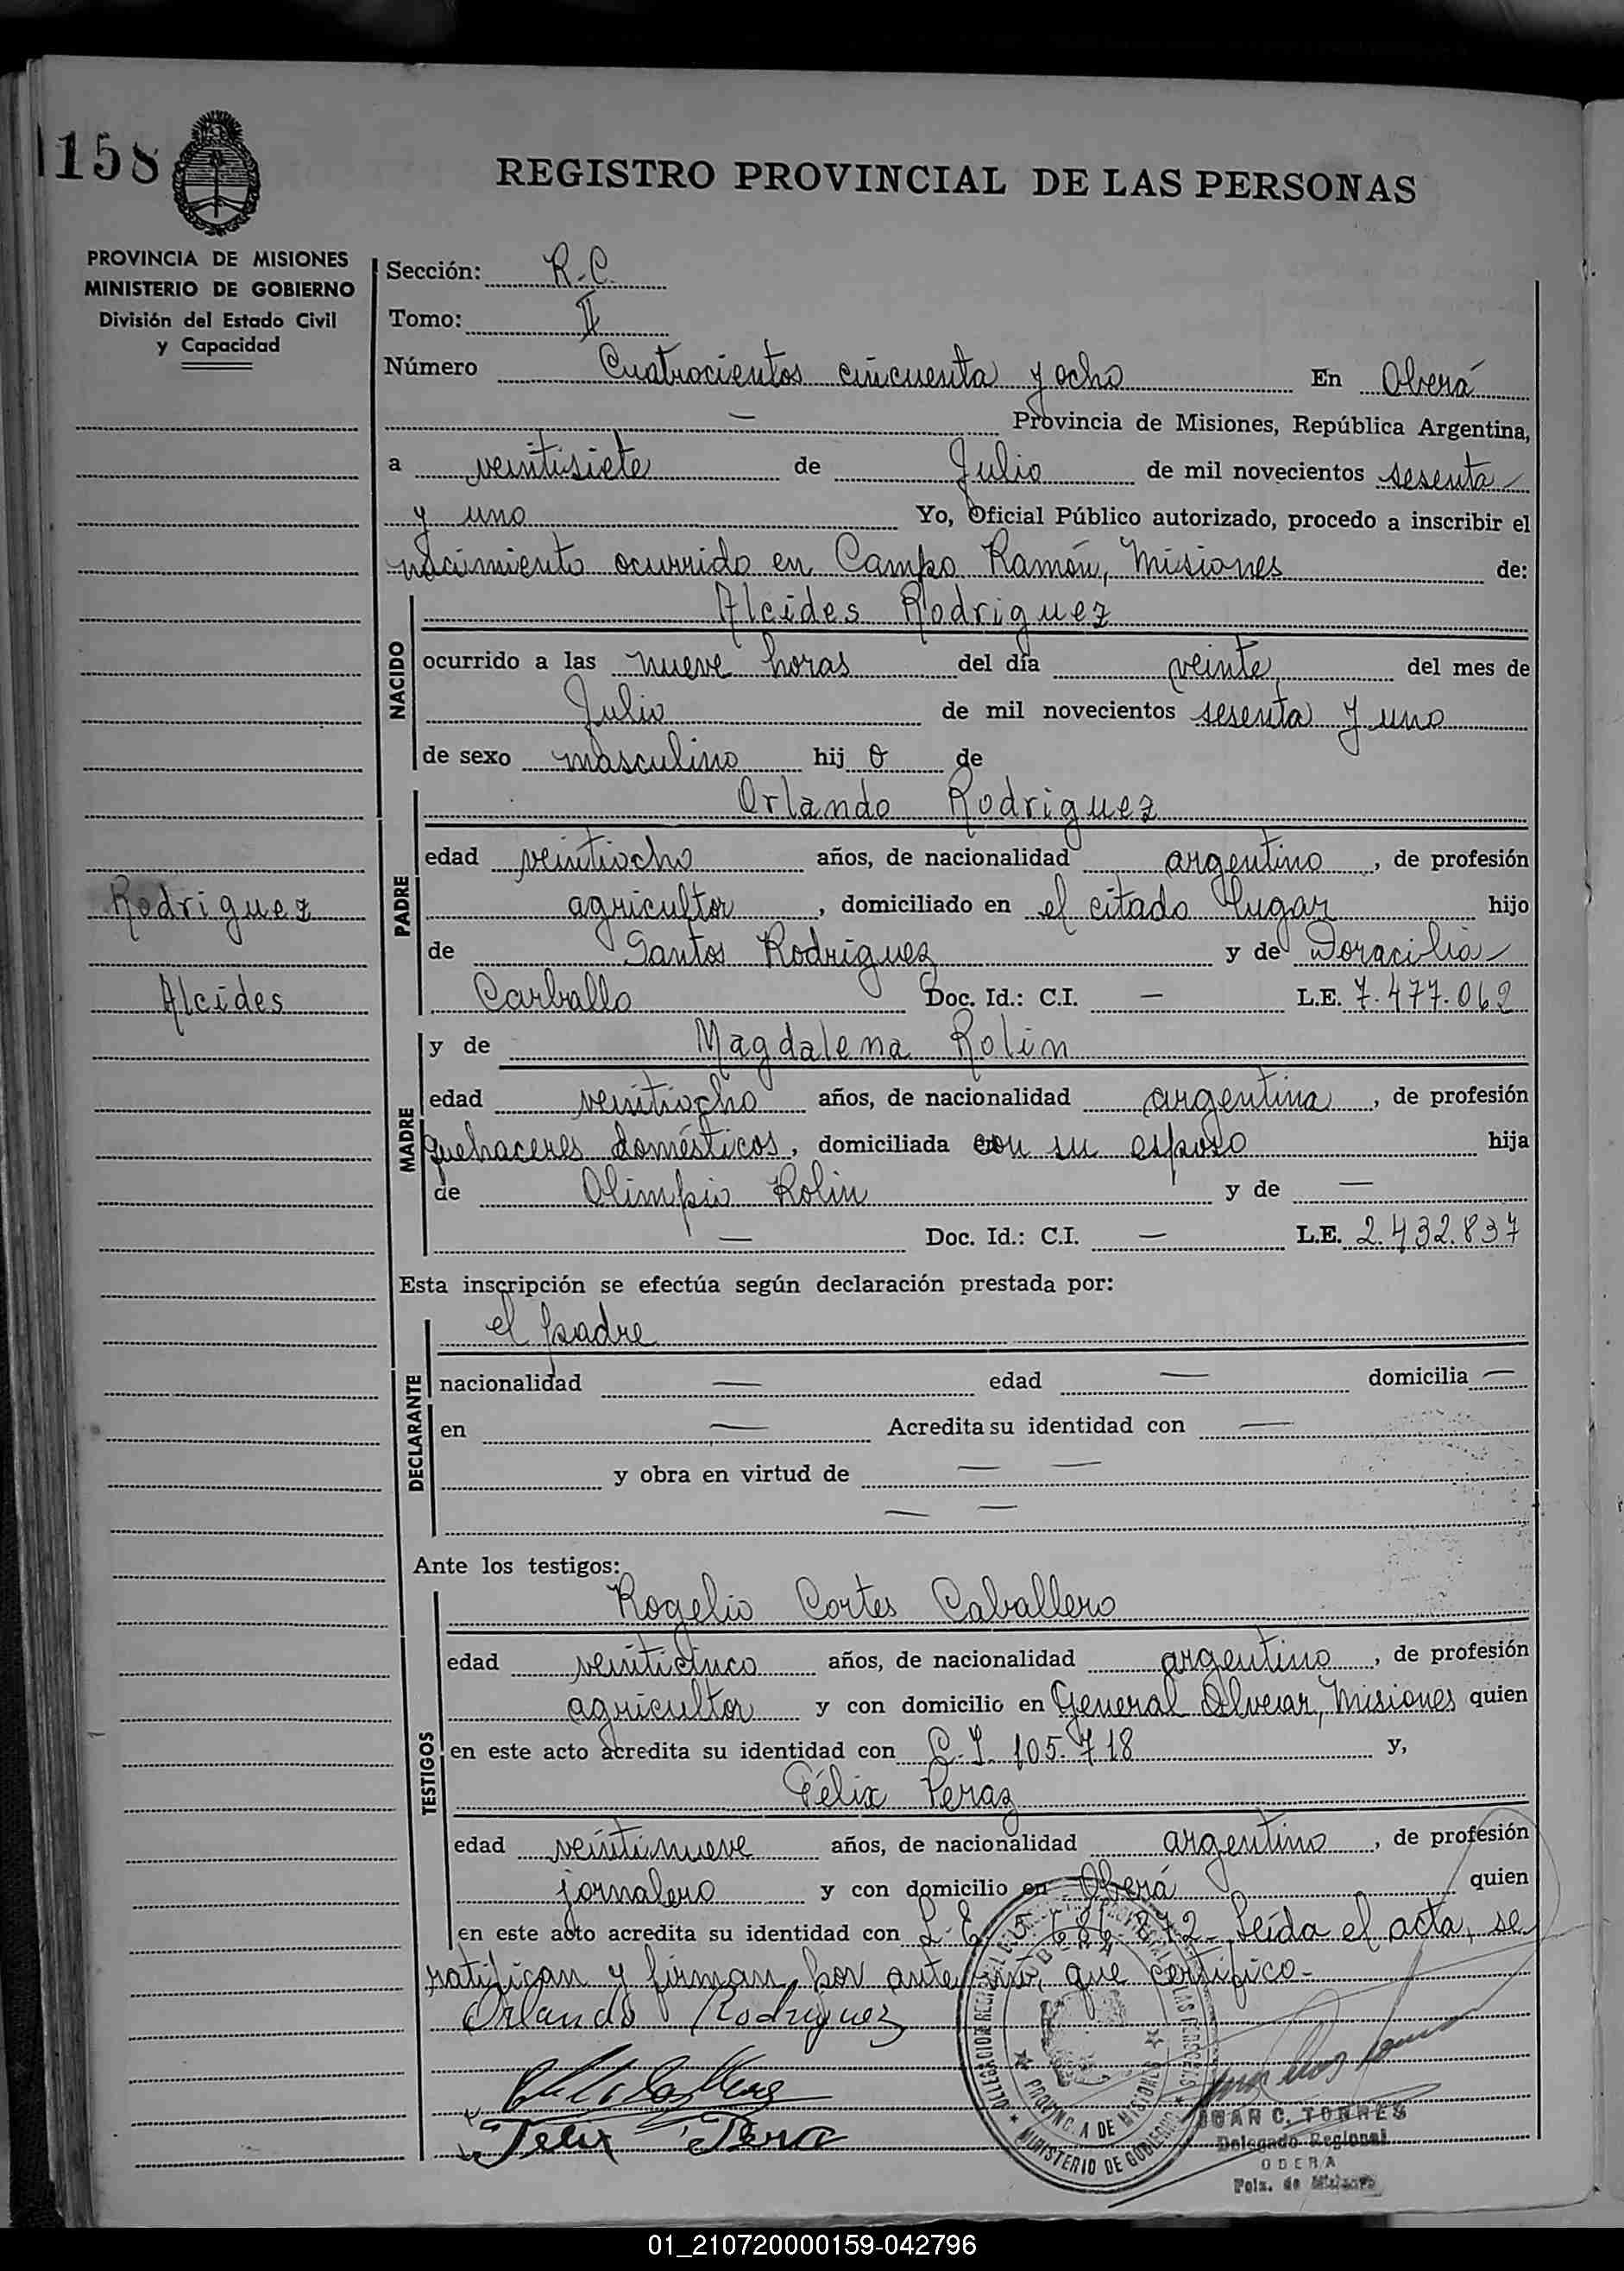 158
REGISTRO PROVINCIAL DE LAS PERSONAS
PROVINCIA DE MISIONES
MINISTERIO DE GOBIERNO
División del Estado Civil
y Capacidad
Sección: R.C.
Tomo: II
Número Cuatrocientos cincuenta y ocho En Oberá
— Provincia de Misiones, República Argentina,
a veintisiete de Julio de mil novecientos sesenta
y uno Yo, Oficial Público autorizado, procedo a inscribir el
nacimiento ocurrido en Campo Ramón, Misiones de:
NACIDO
Alcides Rodriguez
ocurrido a las nueve horas del día veinte del mes de
Julio de mil novecientos sesenta y uno
de sexo masculino hij o de
PADRE
Orlando Rodriguez
edad veintiocho años, de nacionalidad argentino, de profesión
agricultor, domiciliado en el citado lugar hijo
de Santos Rodriguez y de Doracilia
Carballo Doc. Id.: C.I. — L.E. 7.477.062
Rodriguez
Alcides
MADRE
y de Magdalena Rolin
edad veintiocho años, de nacionalidad argentina, de profesión
quehaceres domésticos, domiciliada con su esposo hija
de Olimpio Rolin y de —
— Doc. Id.: C.I. — L.E. 2.432.837
Esta inscripción se efectúa según declaración prestada por:
DECLARANTE
el padre
nacionalidad — edad — domicilia —
en — Acredita su identidad con —
y obra en virtud de — —
— —
Ante los testigos:
TESTIGOS
Rogelio Cortes Caballero
edad veinticinco años, de nacionalidad argentino, de profesión
agricultor y con domicilio en General Alvear, Misiones quien
en este acto acredita su identidad con C.I. 105.718 y,
Félix Peraz
edad veintinueve años, de nacionalidad argentino, de profesión
jornalero y con domicilio en Oberá quien
en este acto acredita su identidad con L.E. Leída el acta, se
ratifican y firman, por ante mí, que certifico.
Orlando Rodriguez
Felix Pera
PROVINCIA DE MISIONES
MINISTERIO DE GOBIERNO
JUAN C. TORRES
Delegado Regional
OBERA
Pcia. de Misiones
01_210720000159-042796